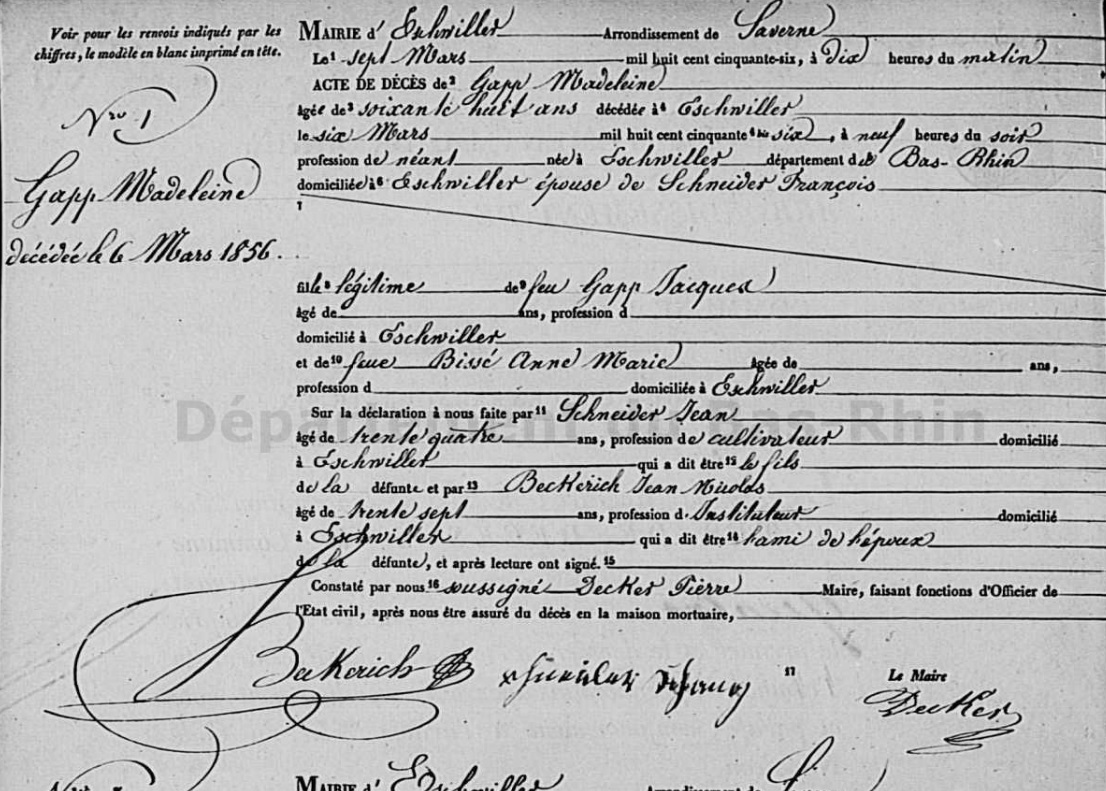 Voir pour les renvois indiqués par les
chiffres, le modèle en blanc imprimé en tête.
Nro 1
Gapp Madeleine
décédée le 6 Mars 1856.
MAIRIE d' Eschwiller Arrondissement de Saverne
Le¹ sept Mars mil huit cent cinquante-six, à dix heures du matin
ACTE DE DÉCÈS de² Gapp Madeleine
âgée de³ soixante huit ans décédée à⁴ Eschwiller
le six Mars mil huit cent cinquante⁴ bis six, à neuf heures du soir
profession de néant née à⁵ Eschwiller département du Bas-Rhin
domiciliée à⁶ Eschwiller épouse de Schneider François
7
fille⁸ légitime de⁹ feu Gapp Jacques
âgé de ans, profession d
domicilié à Eschwiller
et de¹⁰ feue Bissé Anne Marie âgée de ans,
profession d domiciliée à Eschwiller
Sur la déclaration à nous faite par¹¹ Schneider Jean
âgé de trente quatre ans, profession de cultivateur domicilié
à Eschwiller qui a dit être¹² le fils
de la défunte et par¹³ Beckerich Jean Nicolas
âgé de trente sept ans, profession d'Instituteur domicilié
à Eschwiller qui a dit être¹⁴ l'ami de l'époux
de la défunte, et après lecture ont signé.¹⁵
Constaté par nous¹⁶ soussigné Decker Pierre Maire, faisant fonctions d'Officier de
l'Etat civil, après nous être assuré du décès en la maison mortuaire,
Beckerich 17 Le Maire
Decker
Département du Bas-Rhin
MAIRIE d' Eschwiller Arrondissement de